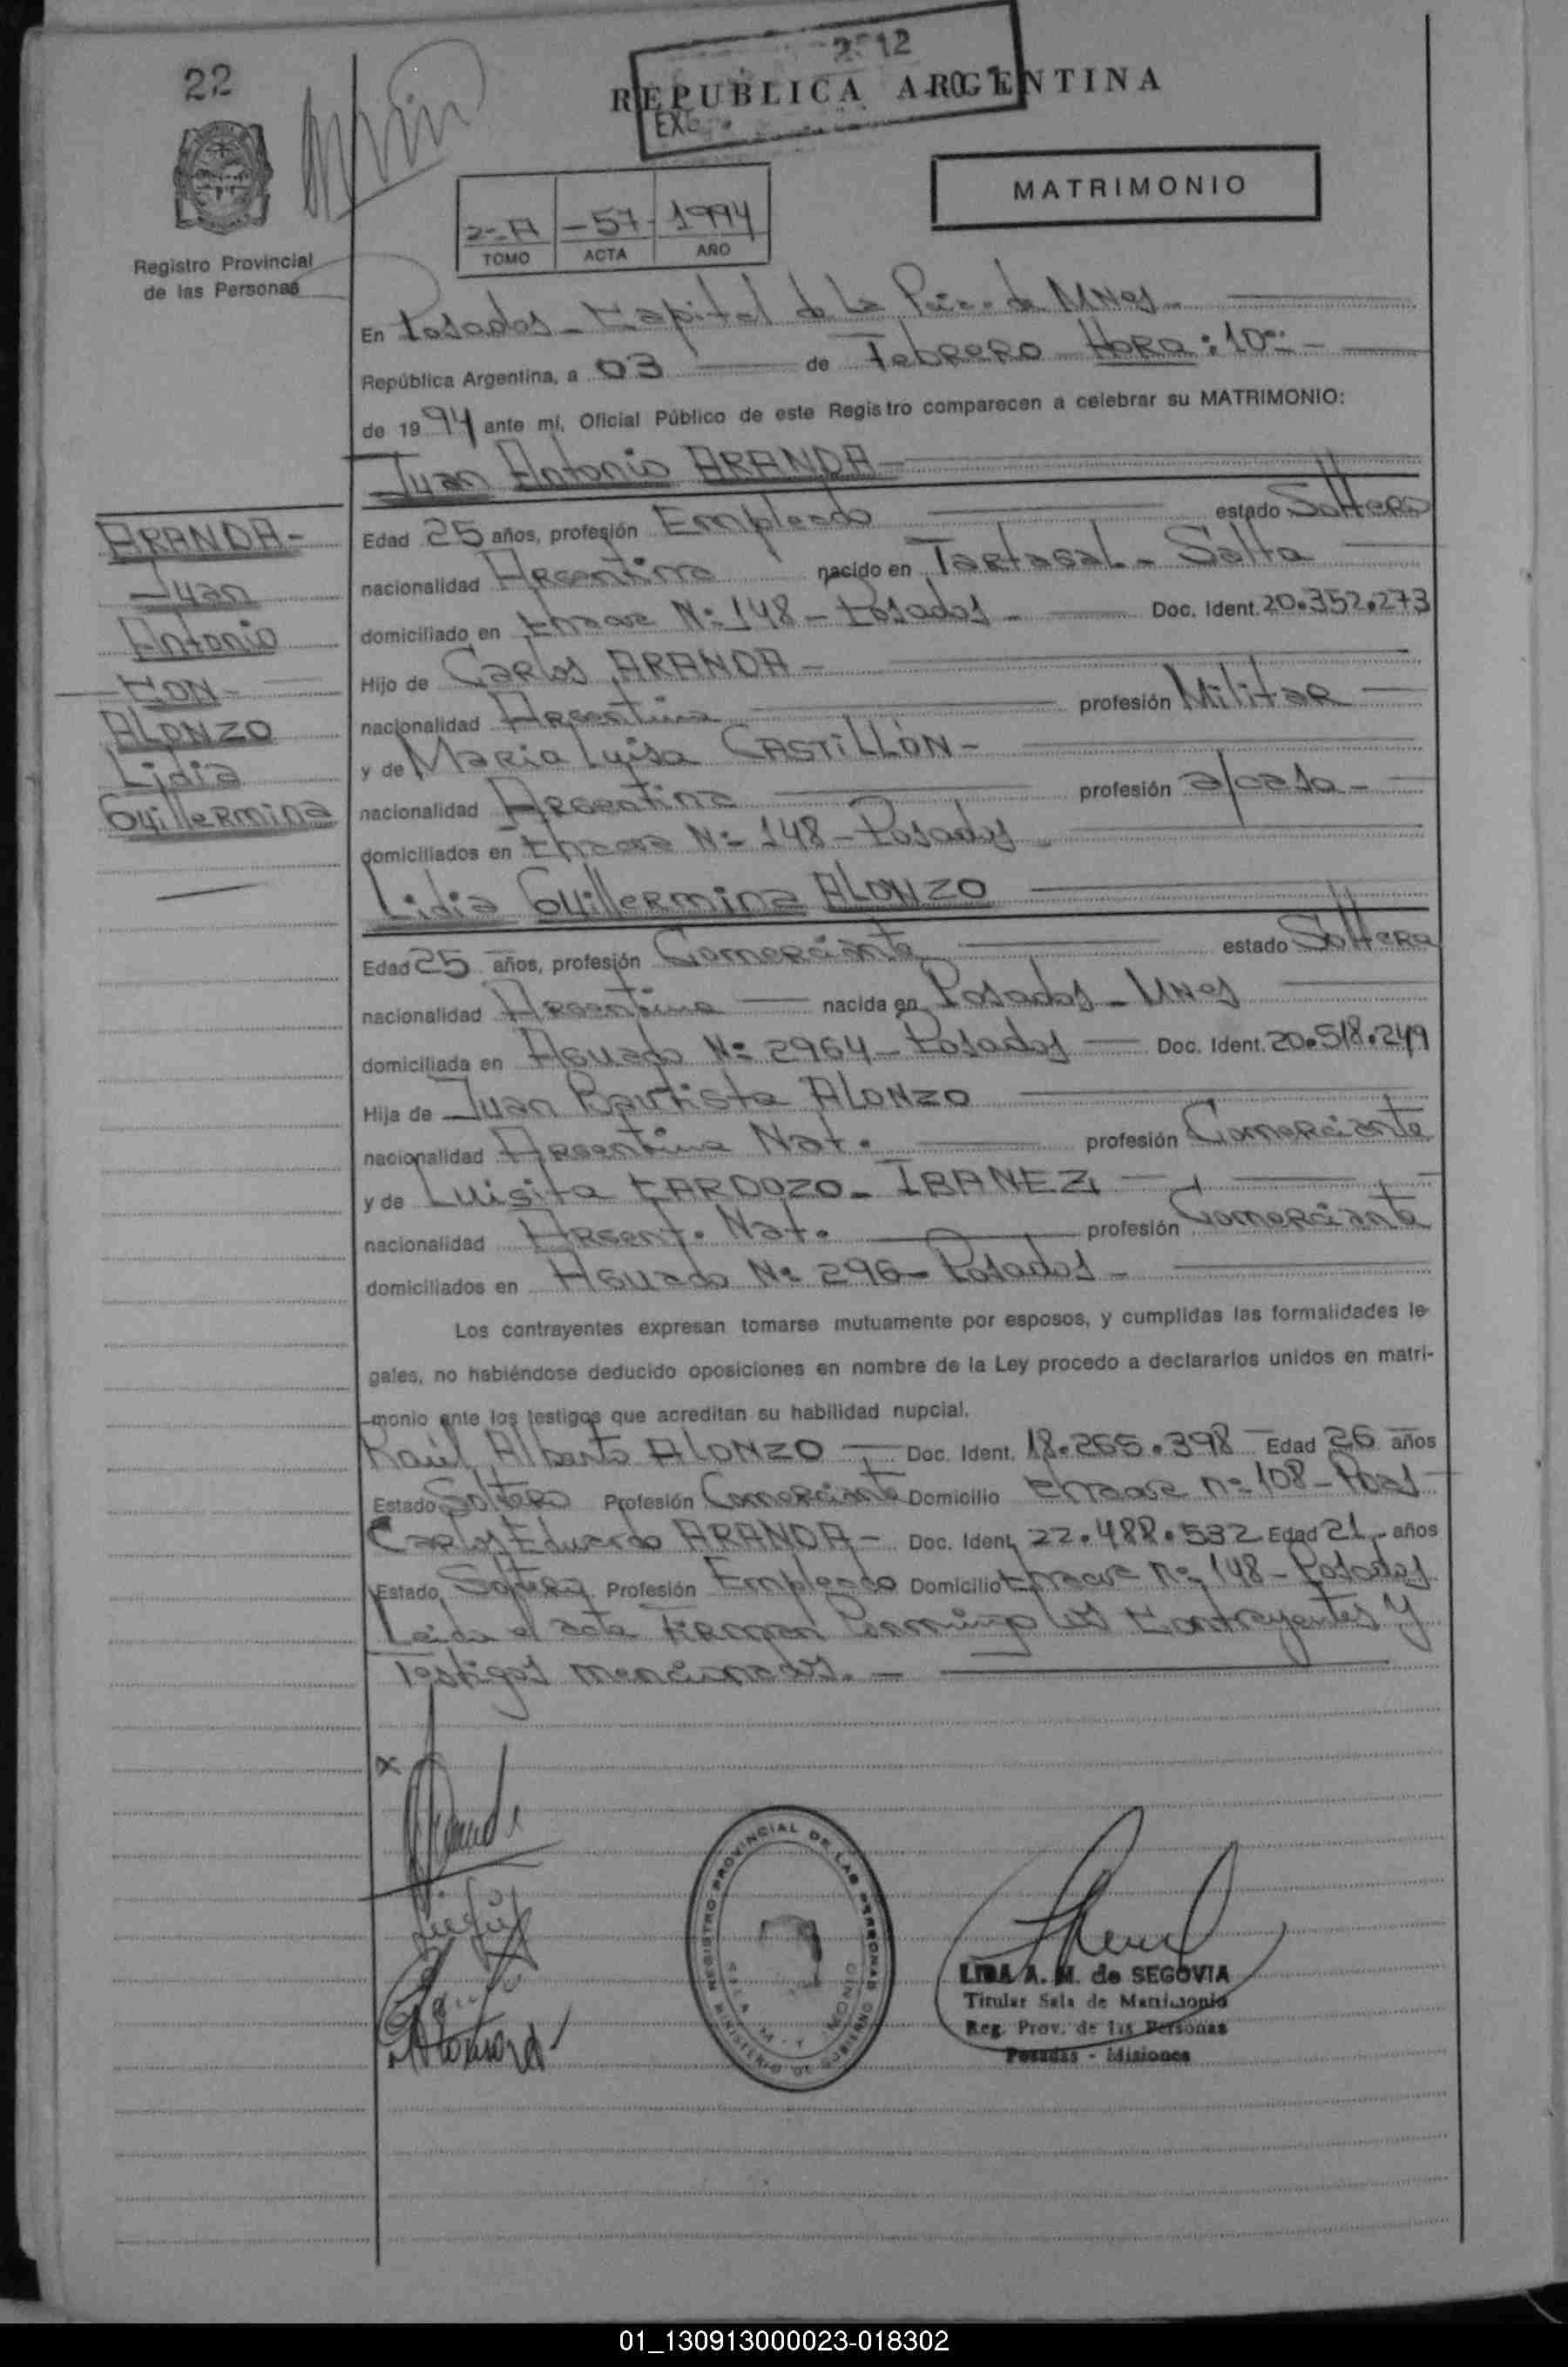 22
2012
REPUBLICA ARGENTINA
MATRIMONIO
2-A -57- 1994
TOMO ACTA AÑO
Registro Provincial
de las Personas
En Posadas - Capital de la de Mnes -
República Argentina, a 03 de Febrero Hora: 10
de 1994 ante mí, Oficial Público de este Registro comparecen a celebrar su MATRIMONIO:
Juan Antonio ARANDA
ARANDA-
Juan
Antonio
-CON-
ALONZO
Lidia
Guillermina
Edad 25 años, profesión Empleado estado Soltero
nacionalidad Argentino nacido en Tartagal - Salta
domiciliado en Nº 148 - Posadas - Doc. Ident. 20.352.273
Hijo de Carlos ARANDA -
nacionalidad Argentina profesión Militar
y de Maria Luisa CASTILLON -
nacionalidad Argentina profesión
domiciliados en Nº 148 - Posadas
Lidia Guillermina ALONZO
Edad 25 años, profesión Comerciante estado Soltera
nacionalidad Argentina nacida en Posadas - Mnes
domiciliada en Aguado Nº 2964 - Posadas Doc. Ident. 20.518.249
Hija de Juan Bautista ALONZO
nacionalidad Argentina Nat. profesión Comerciante
y de Luisita CARDOZO - IBANEZ
nacionalidad Argent. Nat. profesión Comerciante
domiciliados en Aguado Nº 296 - Posadas -
Los contrayentes expresan tomarse mutuamente por esposos, y cumplidas las formalidades le-
gales, no habiéndose deducido oposiciones en nombre de la Ley procedo a declararlos unidos en matri-
monio ante los testigos que acreditan su habilidad nupcial.
Raúl Alberto ALONZO Doc. Ident. 18.265.398 Edad 26 años
Estado Soltero Profesión Comerciante Domicilio nº 108 - Pdas
Carlos Eduardo ARANDA - Doc. Ident. 22.488.532 Edad 21 años
Estado Soltero Profesión Empleado Domicilio nº 148 - Posadas
Leida el acta Firman Conmigo los Contrayentes y
Testigos mencionados. -
REGISTRO PROVINCIAL DE LAS PERSONAS
MINISTERIO DE GOBIERNO
LIBA A. M. de SEGOVIA
Titular Sala de Matrimonio
Reg. Prov. de las Personas
Posadas - Misiones
01_130913000023-018302